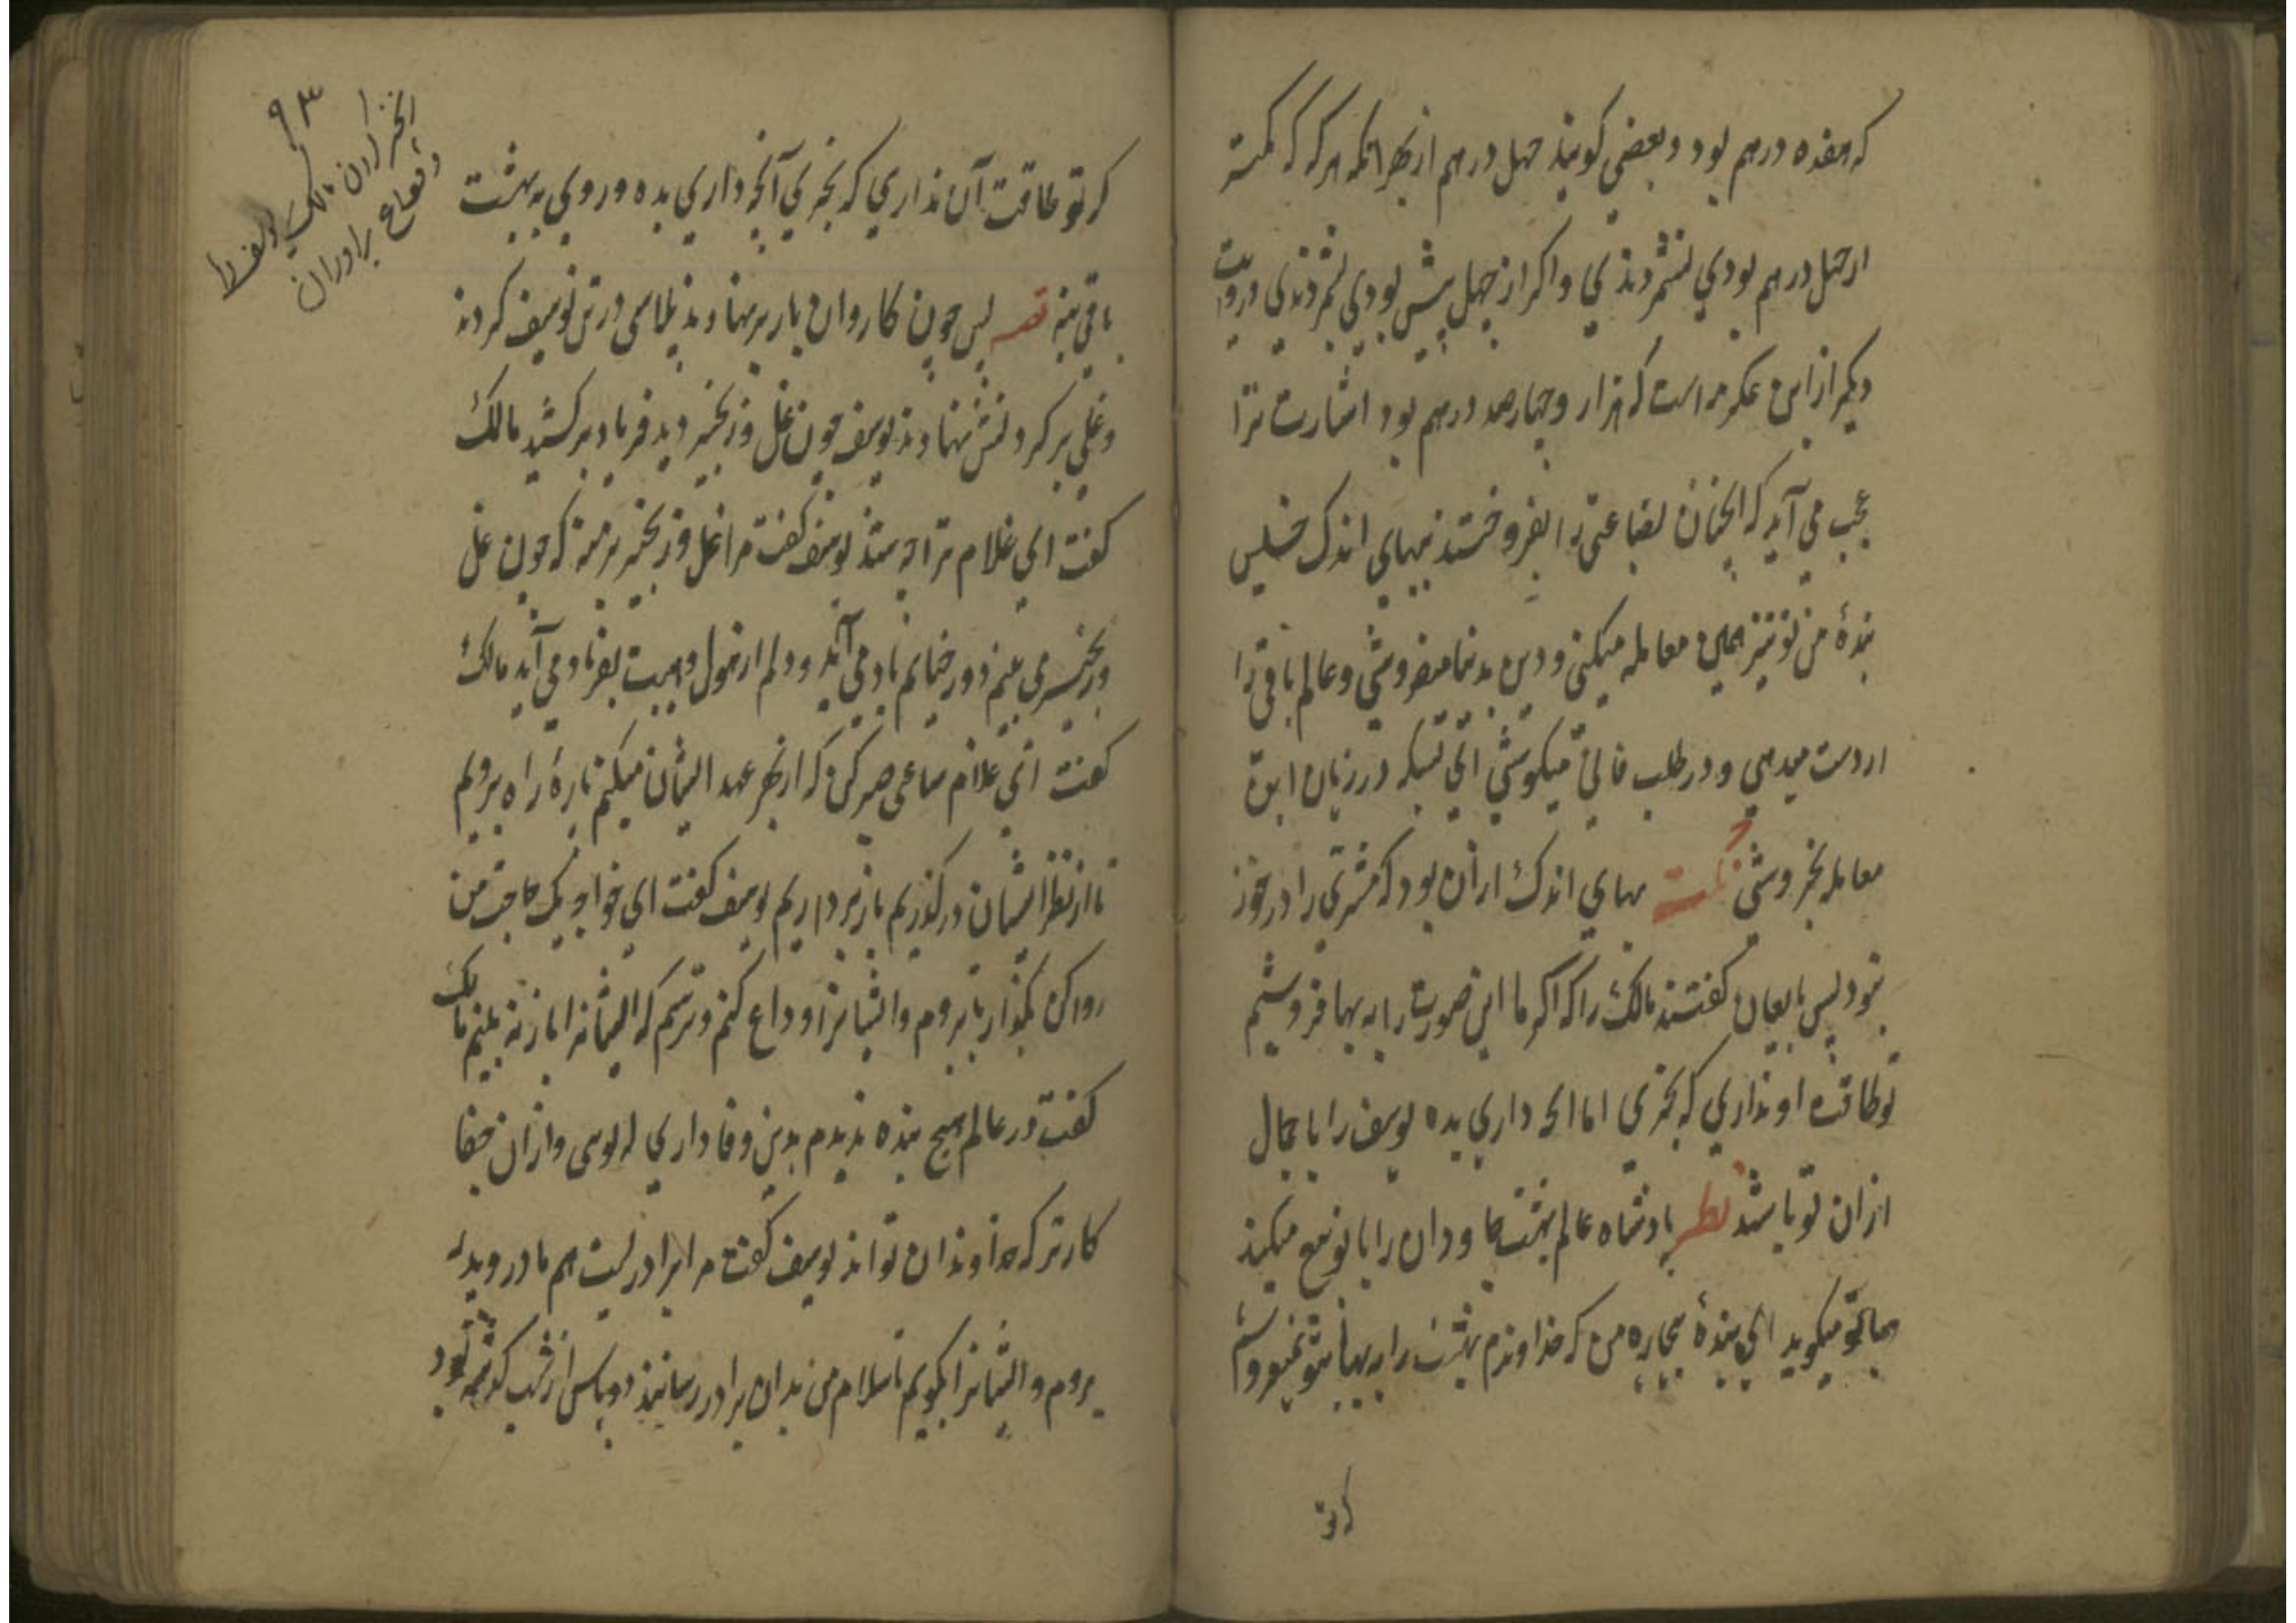 که هفده درهم بود و بعضی کویند چهل درهم از بهر انکه هر که که کمتر
از چهل درهم بودی نشمردندی و اکر از چهل بیش بودی بشمردندی و روایت
دیکر از ابن عکرمه است که هزار و چهارصد درهم بود اشارت ترا
عجب می آید که انچنان بضاعتی را بفروختند ببهای اندک
بندهٔ من تو نیز همین معامله میکنی و دین بدنیا میفروشی و عالم باقی را
از دست میدهی و در طلب فانی میکوشی در زیان این
معامله بخروشی نکته بهای اندک از ان بود که مشتری را در خور
نبود پس بایعان کفتند مالک را که اکر ما این صورت را به بها فروشیم
تو طاقت او نداری که بخری اما انچه داری بده یوسف را با جمال
از ان تو باشد نظر پادشاه عالم بهشت جاودان را با تو بیع میکند
با تو میکوید ای بندهٔ بیچاره من که خداوندم بهشت را به بها بتو نمیفروشم
که تو
۹۳
خریدن مالک یوسف را
و وداع برادران
که تو طاقت آن نداری که بخری آنچه داری بده و روی به بهشت
باقی بنه قصه پس چون کاروان بار بر نهادند پلاسی در تن یوسف کردند
و غلی بر کردنش نهادند یوسف چون غل و زنجیر دید فریاد برکشید مالک
کفت ای غلام ترا چه شد یوسف کفت مرا غل و زنجیر بر منه که چون غل
و زنجیر می بینم دوزخیانم یاد می آید و دلم از هول و هیبت بفریاد می آید مالک
کفت ای غلام ساعتی صبر کن که از بهر عهد ایشان میکنم پارهٔ راه برویم
تا از نظر ایشان در کذریم باز برداریم یوسف کفت ای خواجه یک حاجت من
روا کن بکذار تا بروم و ایشانرا وداع کنم و ترسم که ایشانرا باز نه بینم مالک
کفت در عالم هیچ بنده ندیدم بدین وفاداری که توسی و از ان جفا
کارتر که خداوندان تواند یوسف کفت مرا برادریست هم مادر و پدر
بروم و ایشانرا بکویم تا سلام من بدان برادر رسانند دو پاس از شب کذشته بود